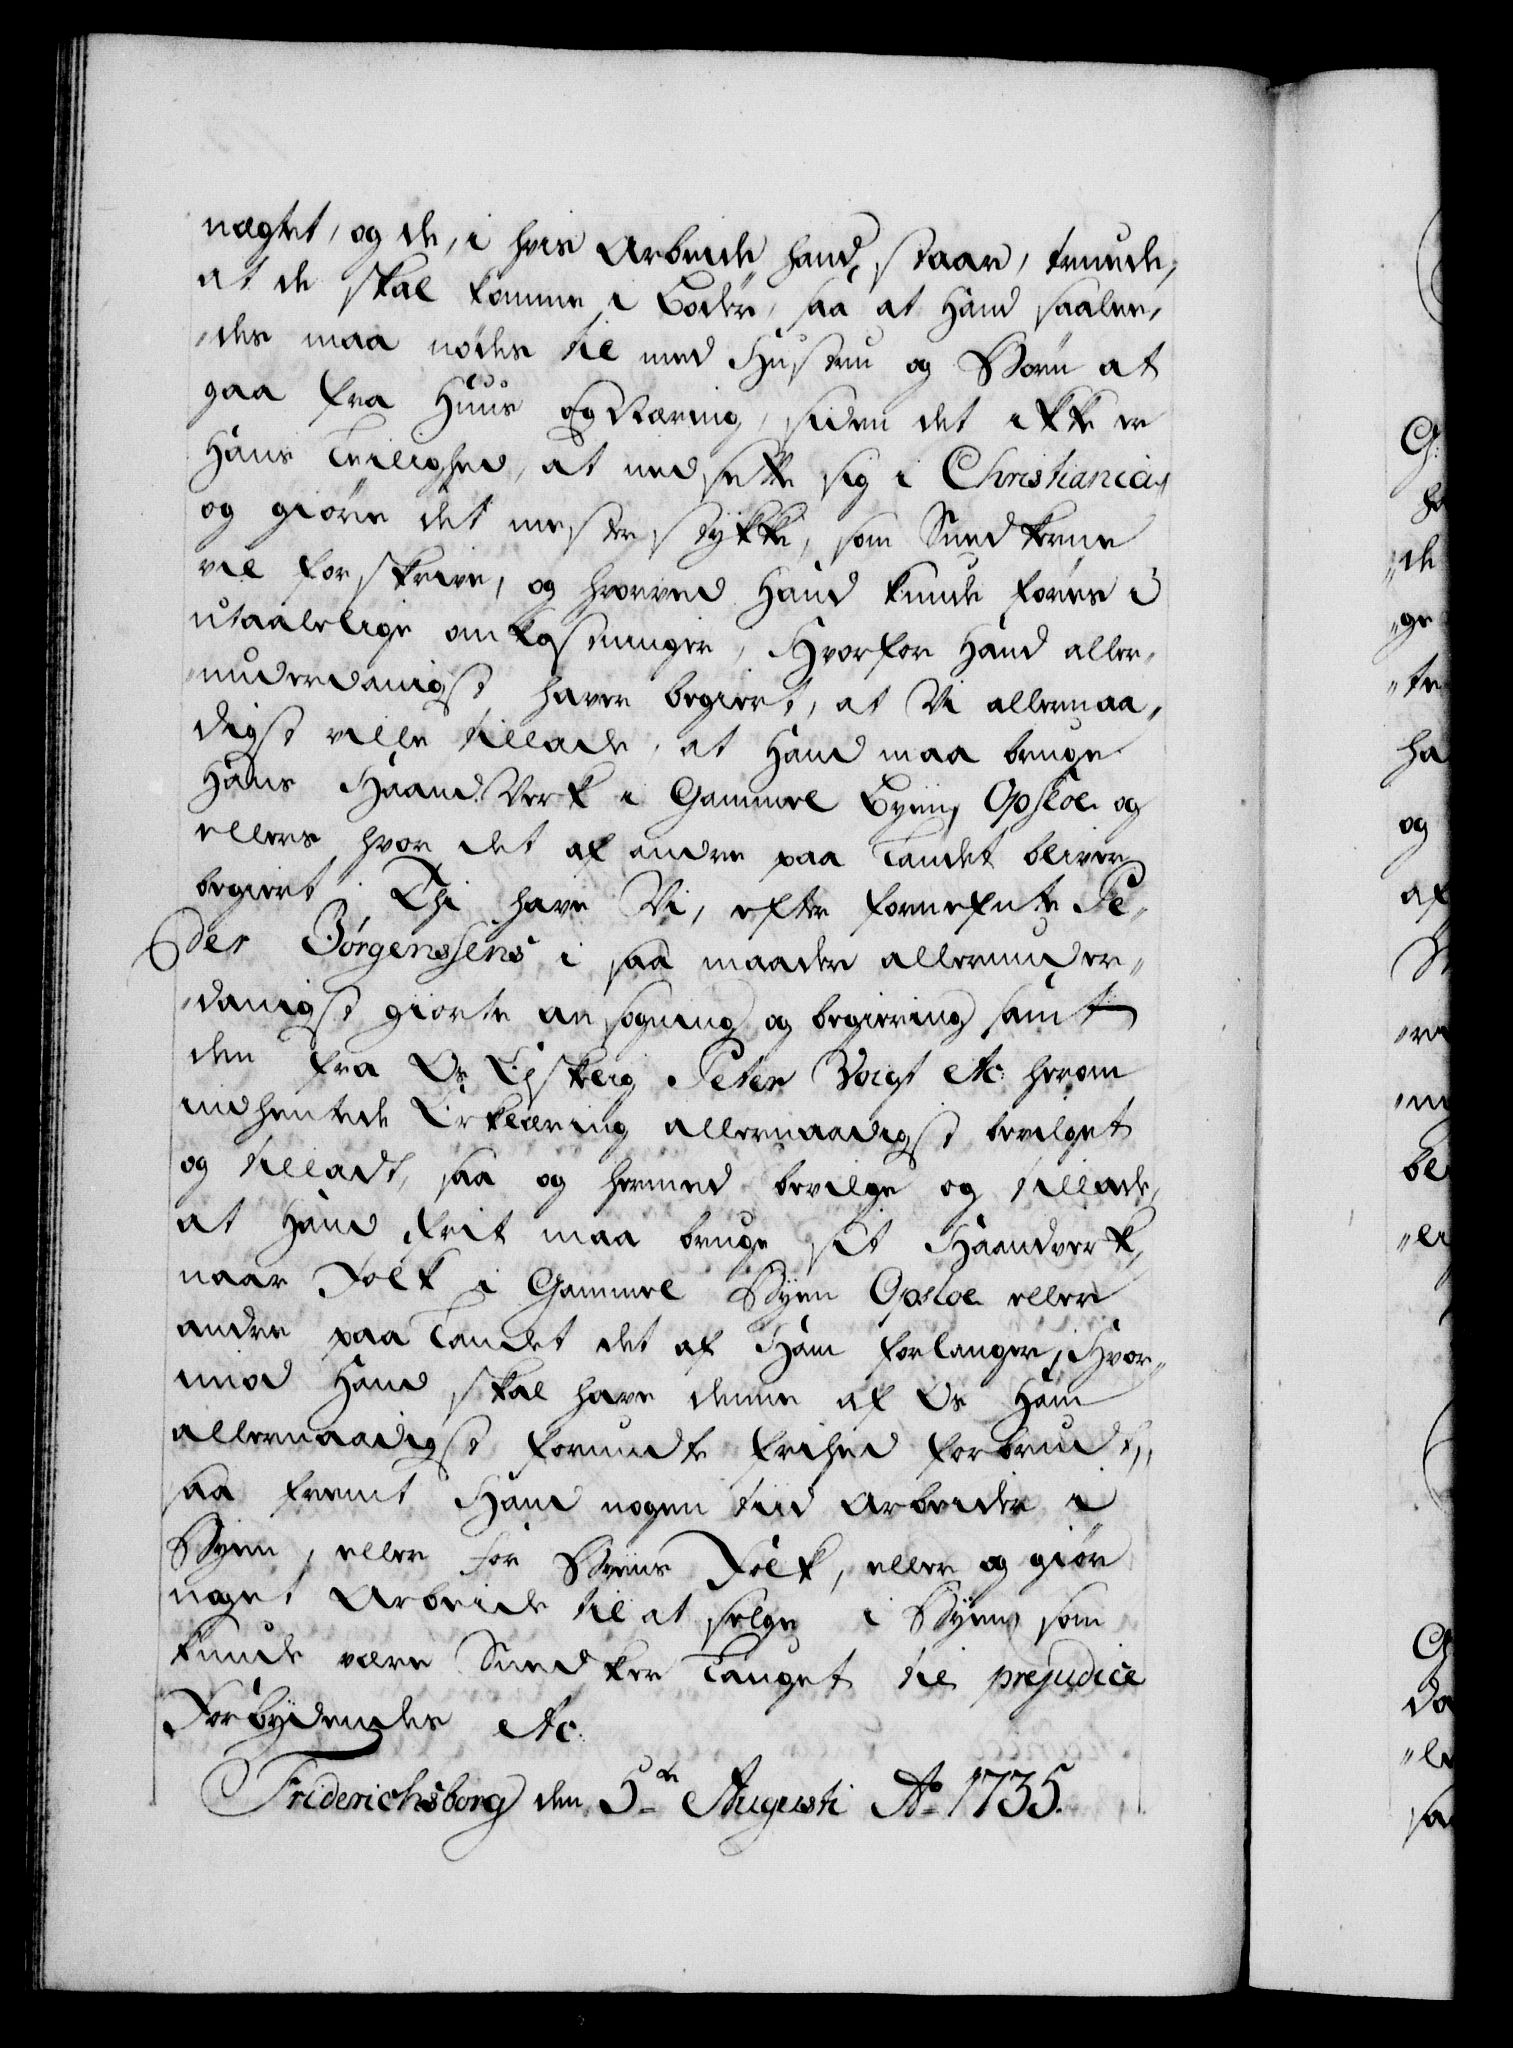 nægtet, og de, i hvis Arbeide hand staar, truede,
at de skal komme i Bøder, saa at Hand saalee,
„des maa nødes til med Hustru og Børn at
gaa fra Huus og Næring, siden det ikke er
Hans Leilighed, at nedsette sig i Christiania,
og giøre det mesterstykke, som Snedkerne
vil forskrive, og hvorved Hand kunde føres i
utaalelige omkostninger, Hvorfor Hand aller„
„underdanigst haver begiert, at Vi allernaa„
digst ville tillade, at Hand maa bruge
Hans Haand Verk i Gammel Byen Opsloe og
ellers hvor det af andre paa Landet bliver
begiert. Thi have Vi, efter fornefnte Pe„
der Børgenssøns i saa maader allerunder„
„danigst giorte ansøgning og begiering samt
den fra Os Elskelig Peter Voigt etc: herom
indhentede Erklæring allernaadigst bevilget
og tilladt, saa og hermed bevilge og tillade,
at Hand frit maa bruge sit Haandverk,
naar Folk i Gammel Byen Opsloe eller
andre paa Landet det af Ham forlanger, Hvor„
imod Hand skal have denne af Os Ham
allernaadigst forundte frihed forbrudt,
saa fremt Hand nogen tiid arbeider i
Byen, eller for Byens Folk, eller og giør
noget Arbeide til at selge i Byen som
kunde være Snedker Lauget til prejudice
Forbydendes etc:
Friderichsborg den 5te Augusti Ao 1735.